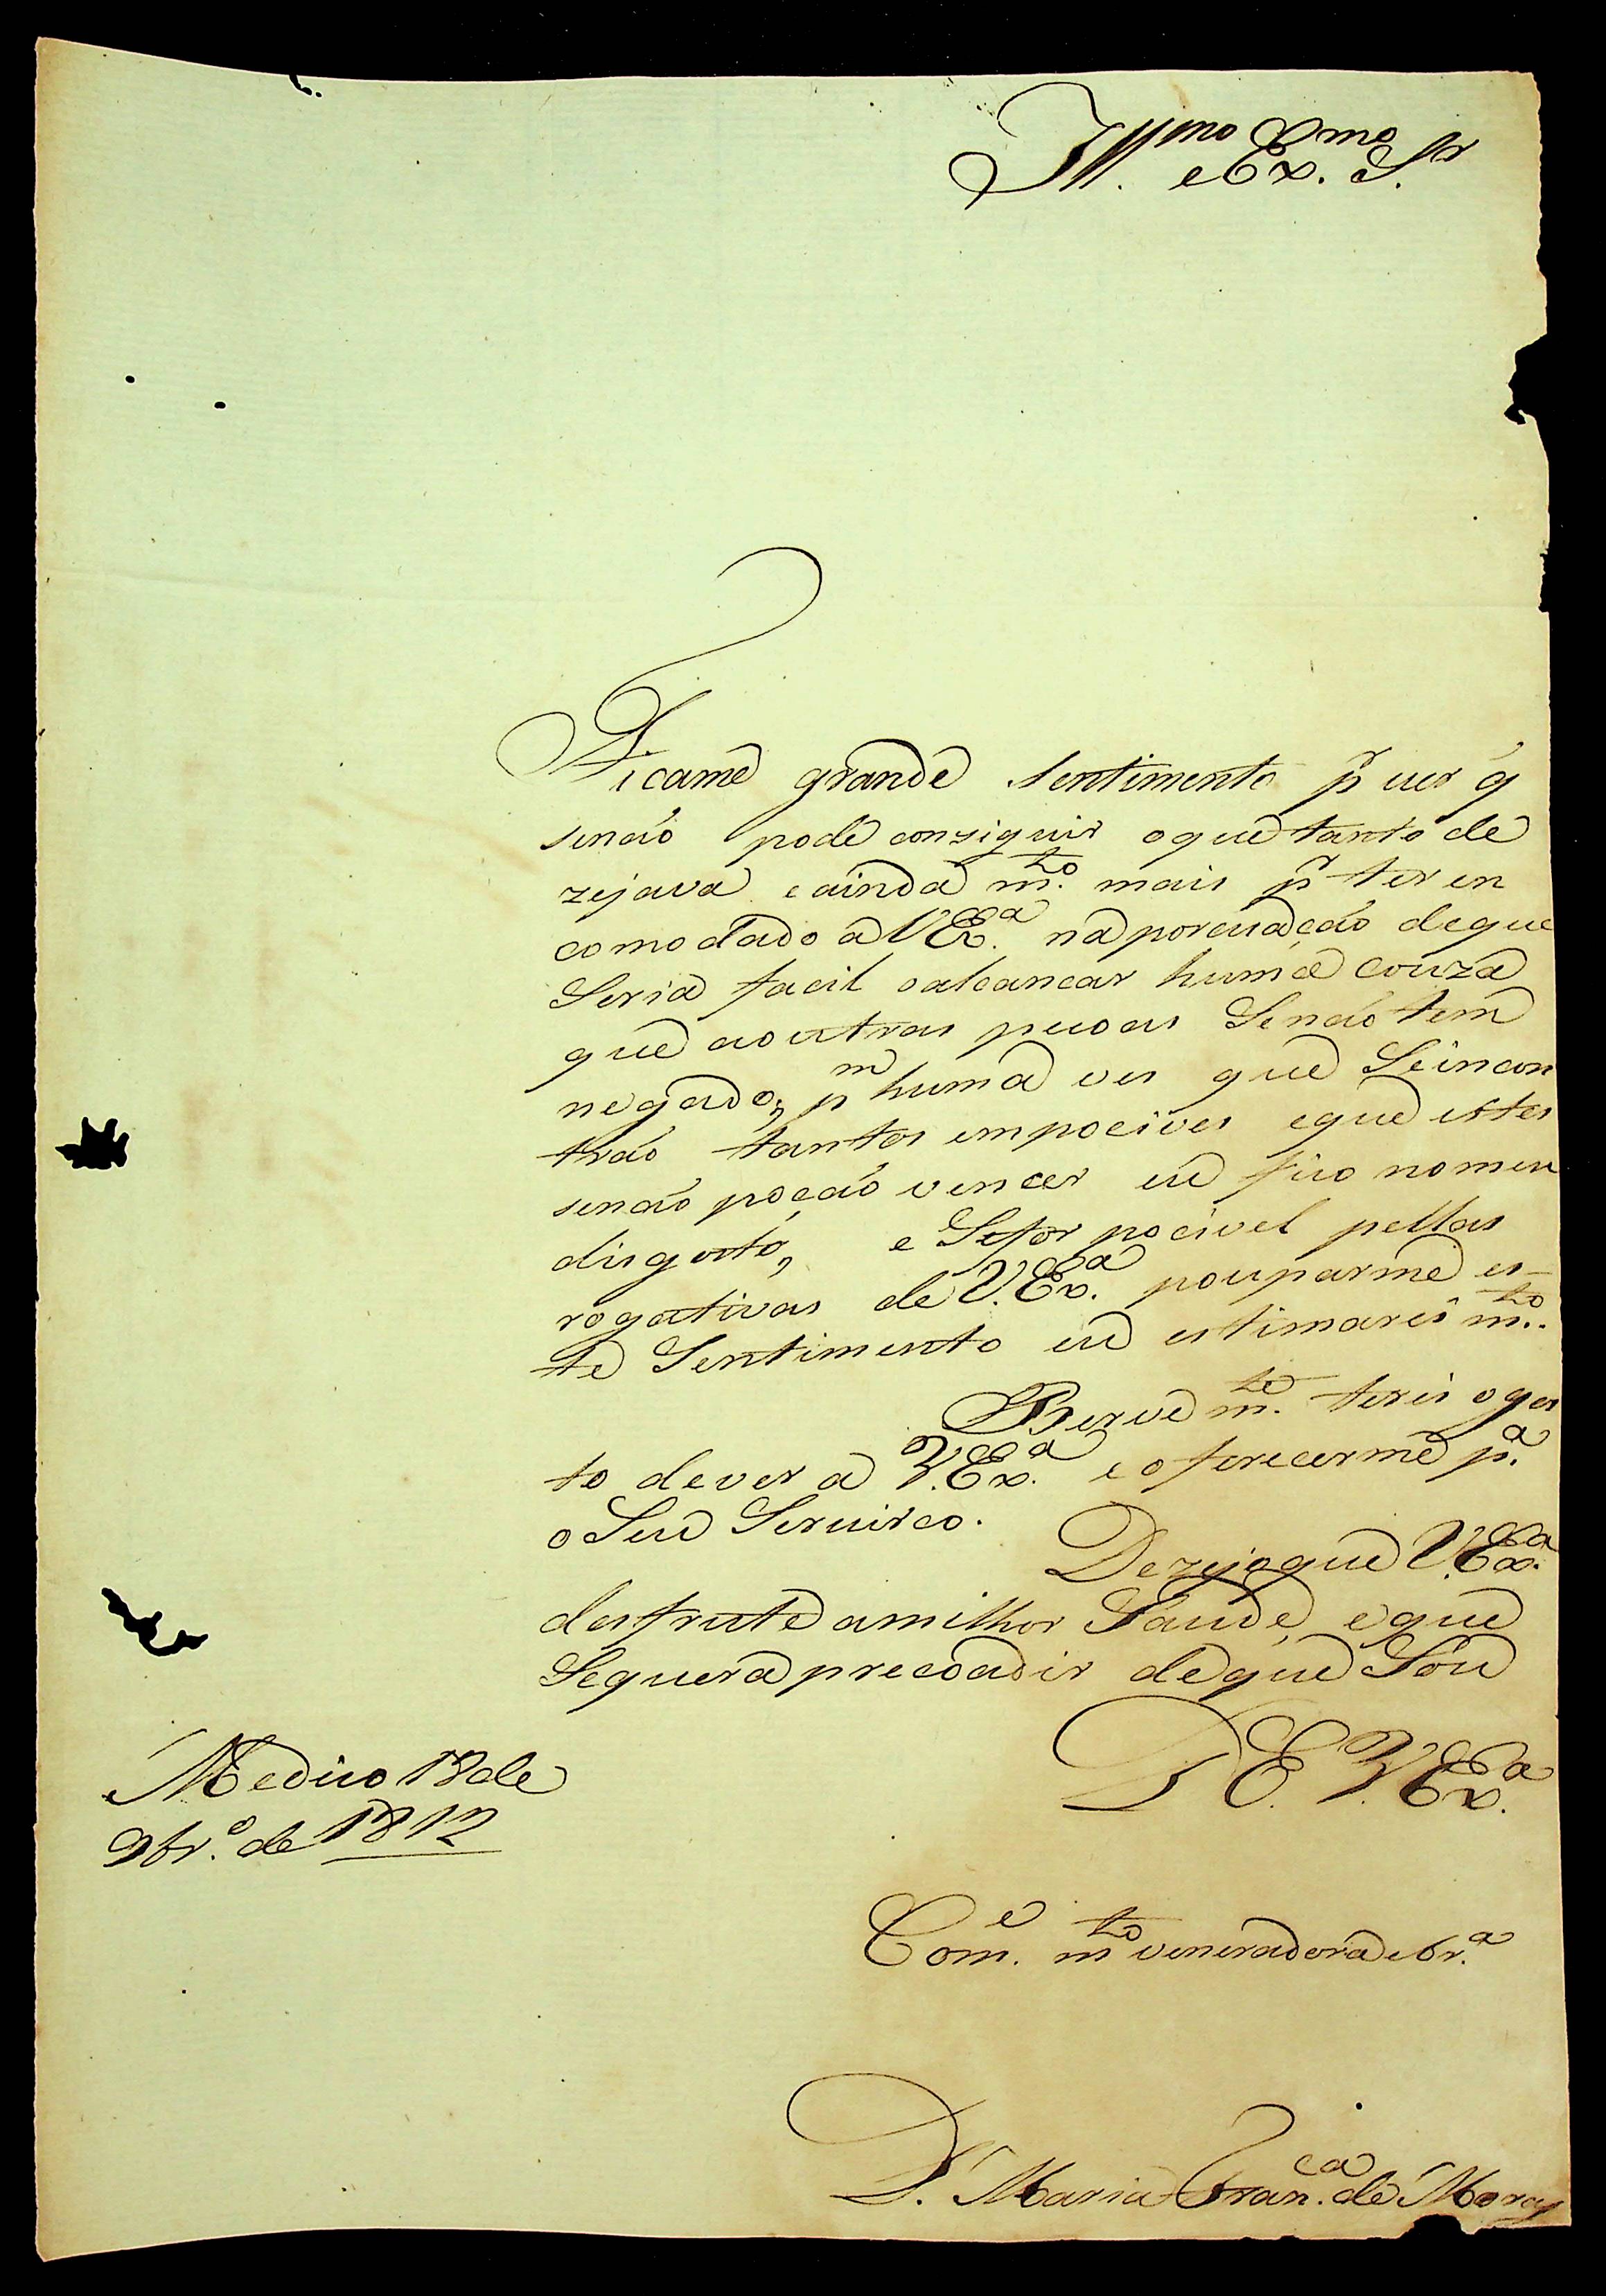 Ill.mo e Ex.mo S.r
Ficame grande sentimento p.r uer q
senaõ pode consiguir oque tanto de
zejava e ainda m.to mais p.r ter en
comodado a V Ex.a na porcuadçaõ deque
Seria facil oalcancar huma couza
que aoutras pecoas Senaõ tem
negado; p.m huma ves que Seincon
traõ tantos empociveis eque estes
senaõ poçaõ vencer eu fico nomeu
disgosto, e Sefor pocivel pellas
rogativas de V. Ex.a pouparme es-
te Sentimento eu estimarei m.to.
Breve m.te terei ogos
to dever a V. Ex.a e oferecerme p.a
o Seu Servirco.
Dezejoque V. Ex.a
desfrute amilhor Saude, eque
Sequera precoadir deque Sou
D E. V. Ex.a
Medico 18 de
9br.o de 1812
Com.e m.to veneradora e br.a
D. Maria Fran.ca de Moray